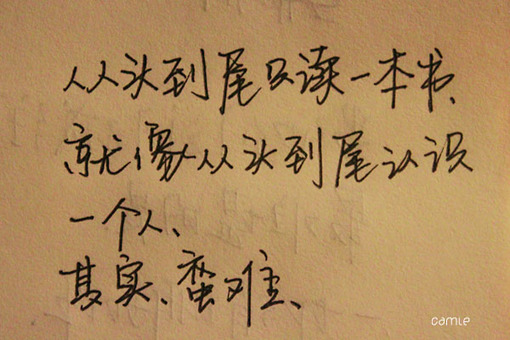 从头到尾只读一本书、
就像从头到尾认识
一个人、
其实、蛮难、
camle